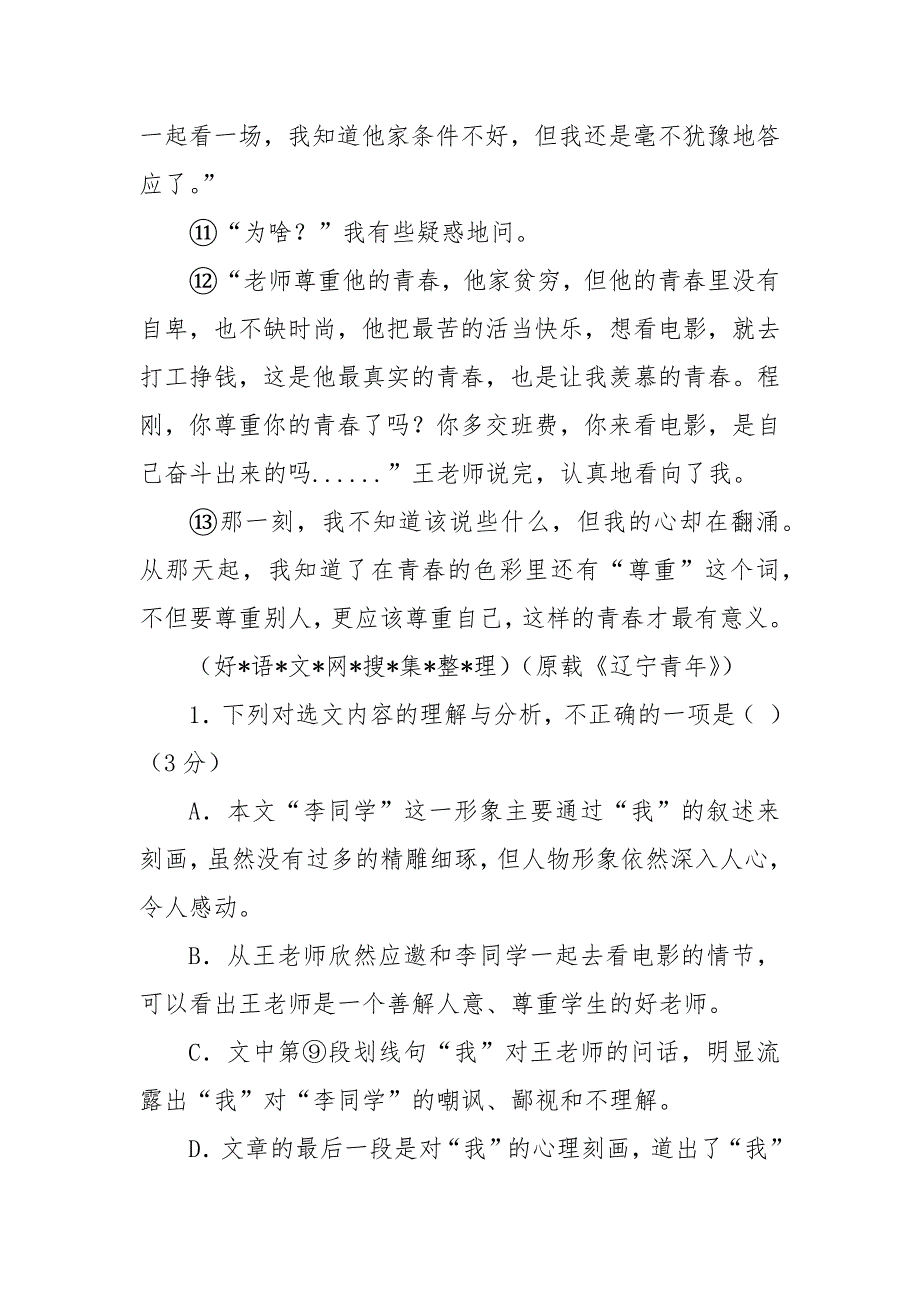 一起看一场，我知道他家条件不好，但我还是毫不犹豫地答
应了。”
⑪“为啥？”我有些疑惑地问。
⑫“老师尊重他的青春，他家贫穷，但他的青春里没有
自卑，也不缺时尚，他把最苦的活当快乐，想看电影，就去
打工挣钱，这是他最真实的青春，也是让我羡慕的青春。程
刚，你尊重你的青春了吗？你多交班费，你来看电影，是自
己奋斗出来的吗......”王老师说完，认真地看向了我。
⑬那一刻，我不知道该说些什么，但我的心却在翻涌。
从那天起，我知道了在青春的色彩里还有“尊重”这个词，
不但要尊重别人，更应该尊重自己，这样的青春才最有意义。
（好*语*文*网*搜*集*整*理）（原载《辽宁青年》）
1．下列对选文内容的理解与分析，不正确的一项是（ ）
（3分）
A．本文“李同学”这一形象主要通过“我”的叙述来
刻画，虽然没有过多的精雕细琢，但人物形象依然深入人心，
令人感动。
B．从王老师欣然应邀和李同学一起去看电影的情节，
可以看出王老师是一个善解人意、尊重学生的好老师。
C．文中第⑨段划线句“我”对王老师的问话，明显流
露出“我”对“李同学”的嘲讽、鄙视和不理解。
D．文章的最后一段是对“我”的心理刻画，道出了“我”